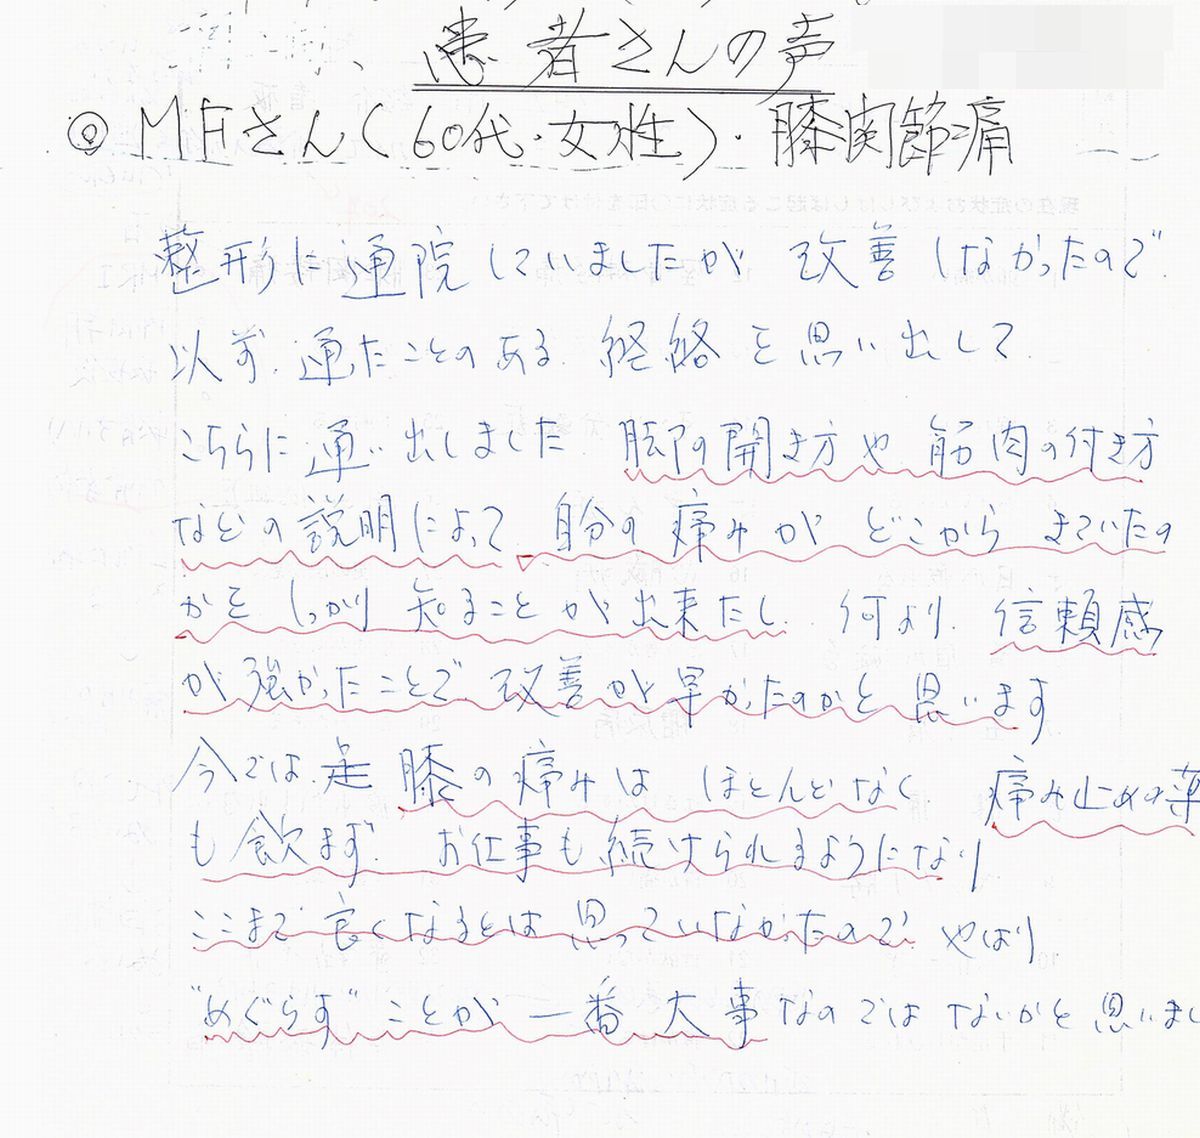 患者さんの声
◎MFさん(60代・女性)・膝関節痛
整形に通院していましたが 改善しなかったので
以前 通ったことのある 経絡を思い出して
こちらに通い出しました 脚の開き方や 筋肉の付き方
などの説明によって 自分の痛みが どこから きていたの
かを しっかり 知ることが出来たし 何より 信頼感
が強かったことで 改善が早かったのかと 思います
今では 足 膝の痛みは ほとんどなく 痛み止めの薬
も飲まず お仕事も続けられるようになり
ここまで良くなるとは思っていなかったので やはり
"めぐらす"ことが 一番大事なのではないかと思いまし